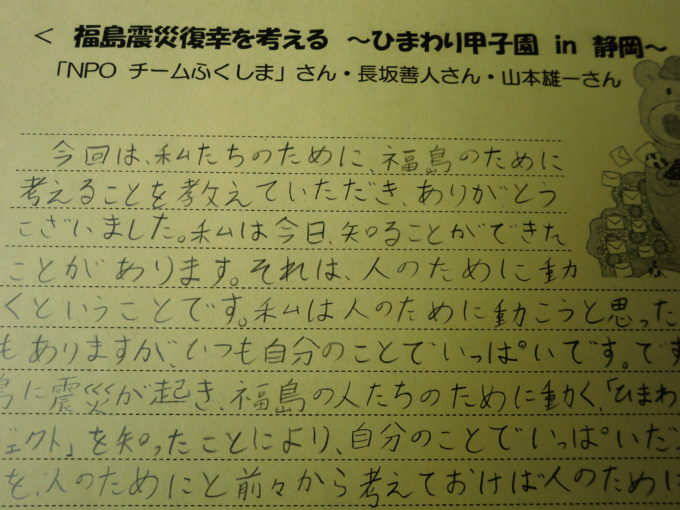 < 福島震災復幸を考える ～ひまわり甲子園 in 静岡～
「NPO チームふくしま」さん・長坂善人さん・山本雄一さん
今回は、私たちのために、福島のために
考えることを教えていただき、ありがとう
ございました。私は今日、知ることができた
ことがあります。それは、人のために動
くということです。私は人のために動こうと思った
もありますが、いつも自分のことでいっぱいです。です
島に震災が起き、福島の人たちのために動く、「ひまわ
ェクト」を知ったことにより、自分のことでいっぱいだっ
を、人のためにと前々から考えておけば人のために